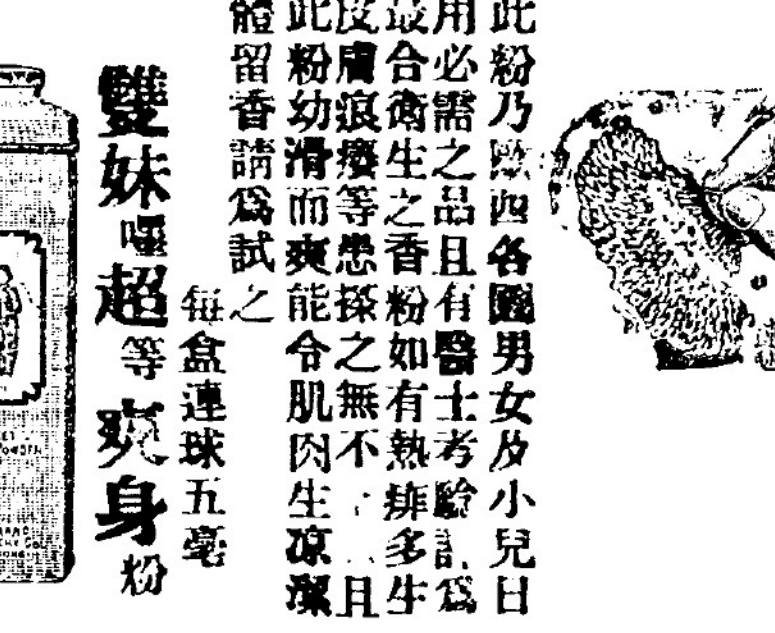 此粉乃歐西各國男女及小兒日
用必需之品且有醫士考驗訂爲
最合衛生之香粉如有熱痱多生
皮膚痕癢等患搽之無不且
此粉幼滑而爽能令肌肉生凉潔
體留香請爲試之
每盒連球五毫
雙妹嘜超等爽身粉